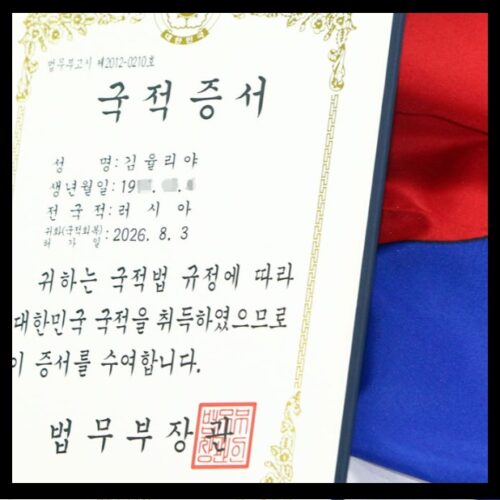 대한민국
법무부고시 제2012-0210호
국적증서
성 명: 김율리야
생년월일: 19
전 국적: 러시아
귀화(국적회복)
허 가 일: 2026. 8. 3
귀하는 국적법 규정에 따라
대한민국 국적을 취득하였으므로
이 증서를 수여합니다.
법무부장관